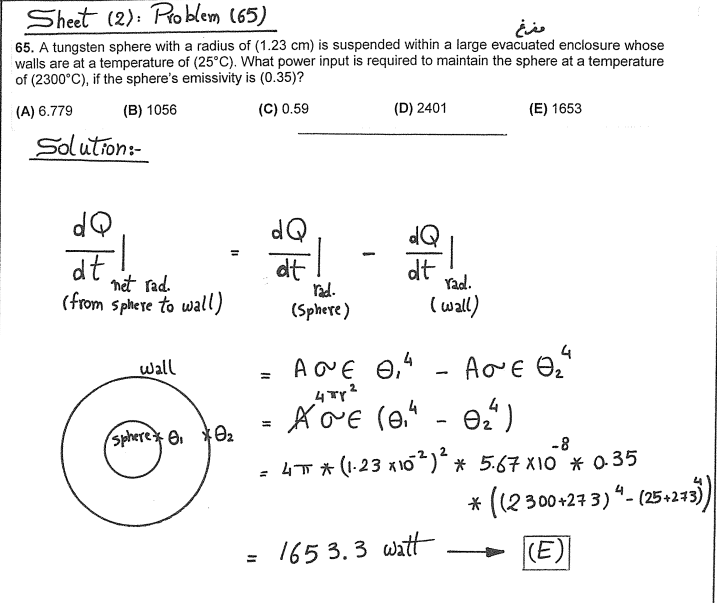 Sheet (2): Problem (65)
مفرغ
65. A tungsten sphere with a radius of (1.23 cm) is suspended within a large evacuated enclosure whose
walls are at a temperature of (25°C). What power input is required to maintain the sphere at a temperature
of (2300°C), if the sphere's emissivity is (0.35)?
(A) 6.779 (B) 1056 (C) 0.59 (D) 2401 (E) 1653
Solution:-
dQ/dt | net rad. (from sphere to wall) = dQ/dt | rad. (sphere) - dQ/dt | rad. (wall)
= Aσε θ₁⁴ - Aσε θ₂⁴
4πr²
= Aσε (θ₁⁴ - θ₂⁴)
= 4π * (1.23 x10⁻²)² * 5.67 x10⁻⁸ * 0.35
* ((2300+273)⁴ - (25+273)⁴)
= 1653.3 watt → (E)
wall
sphere θ₁ θ₂